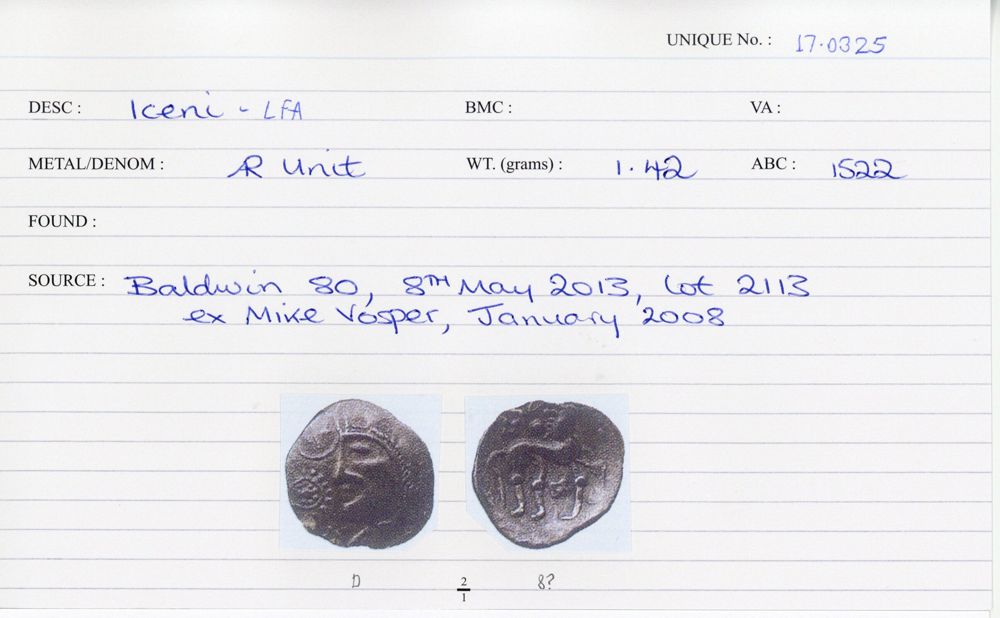 UNIQUE No. : 17.0325
DESC : Iceni - LFA BMC : VA :
METAL/DENOM : AR Unit WT. (grams) : 1.42 ABC : 1522
FOUND :
SOURCE : Baldwin 80, 8TH May 2013, Lot 2113
ex Mike Vosper, January 2008
D 2/1 8?